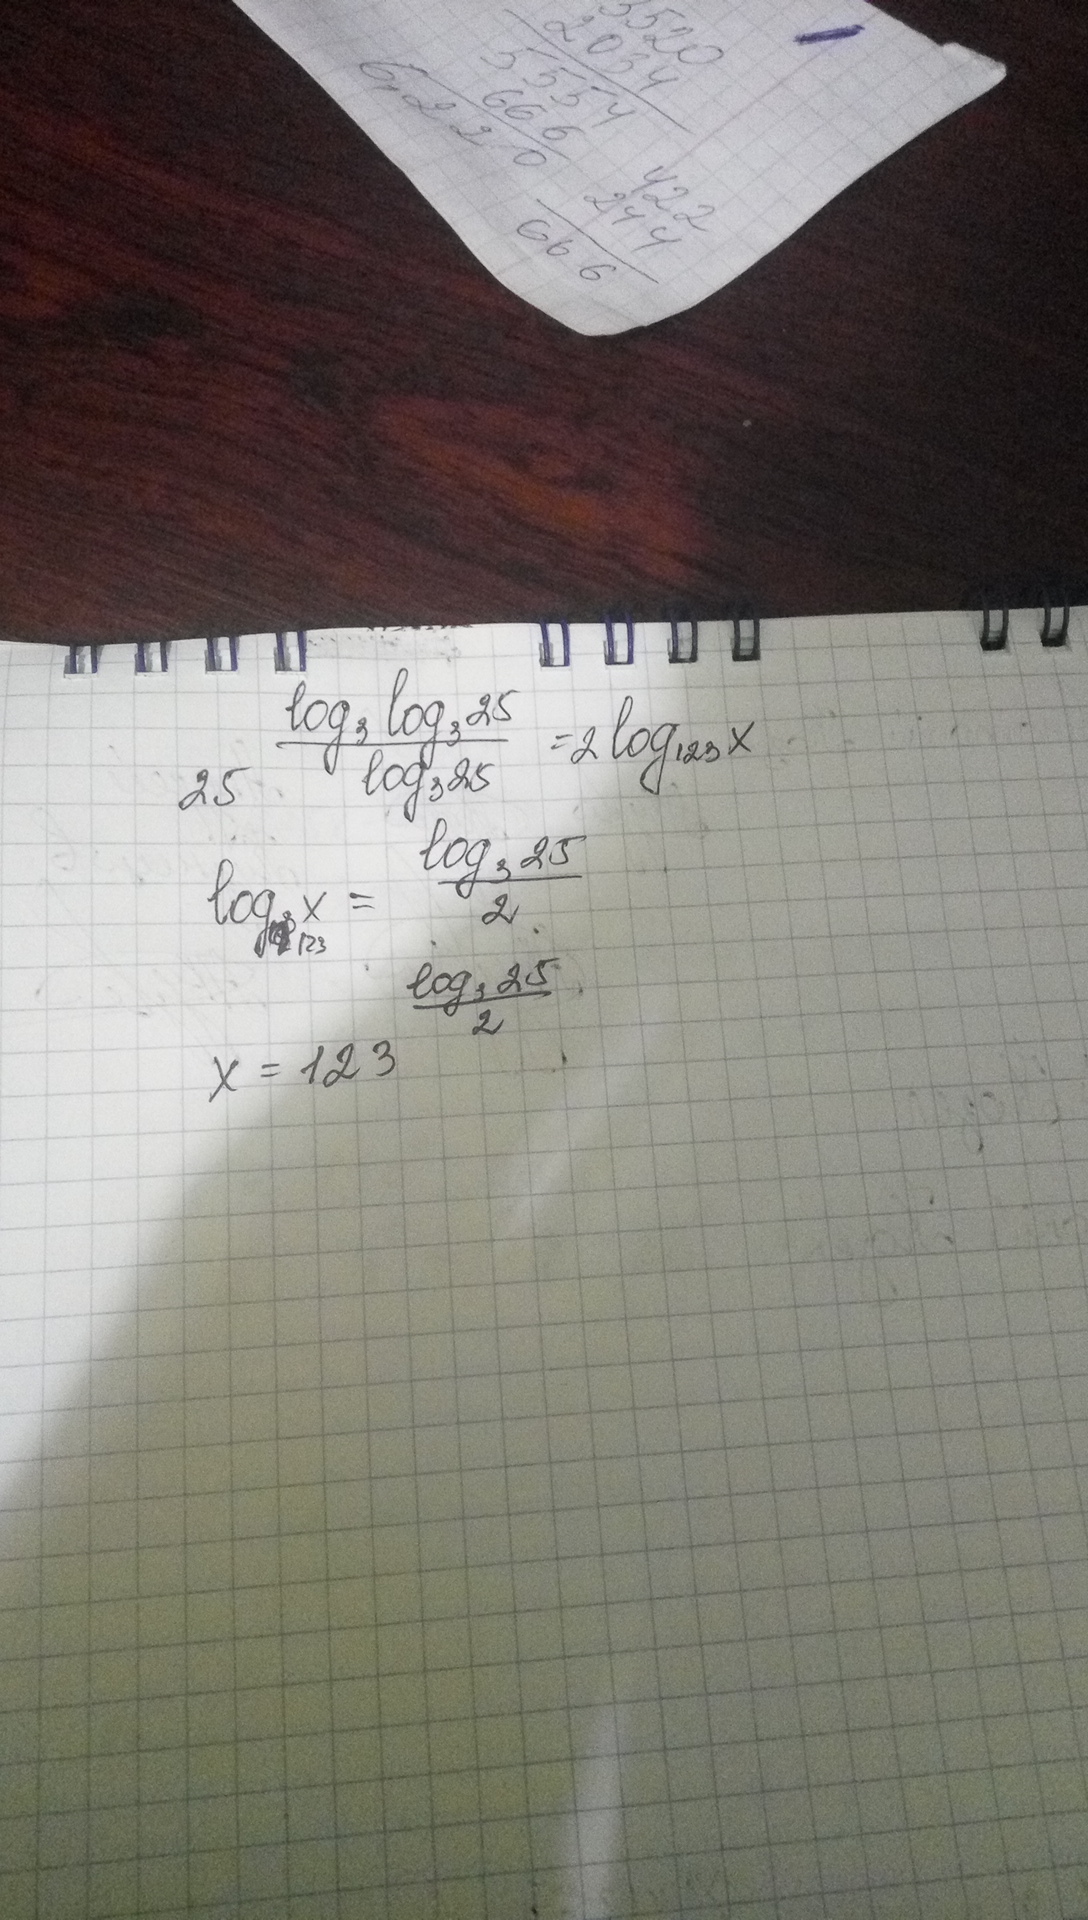 3520
2034
5554
666
6,220
422
244
666
25^{\frac{\log_3 \log_3 25}{\log_3 25}} = 2\log_{123} x
\log_{123} x = \frac{\log_3 25}{2}
x = 123^{\frac{\log_3 25}{2}}